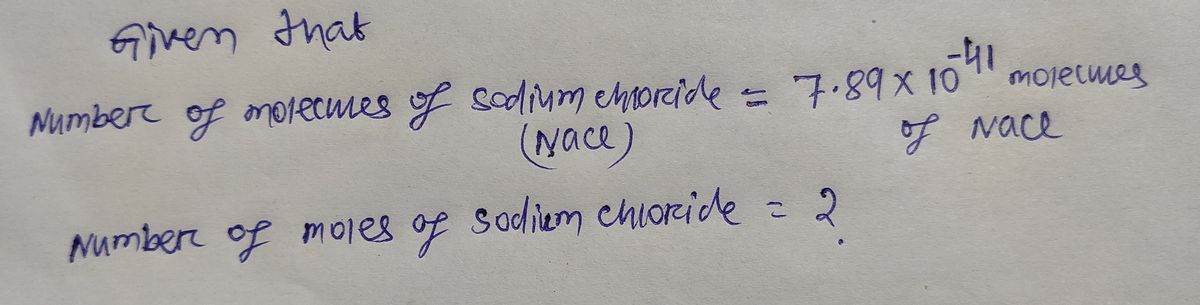 Given that
Number of molecules of sodium chloride = 7.89 × 10⁻⁴¹ molecules
(NaCl) of NaCl
Number of moles of sodium chloride = ?